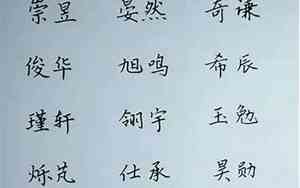 崇昱 晏然 奇谦
俊华 旭鸣 希辰
瑾轩 翎宇 玉勉
烁芃 仕承 昊勋